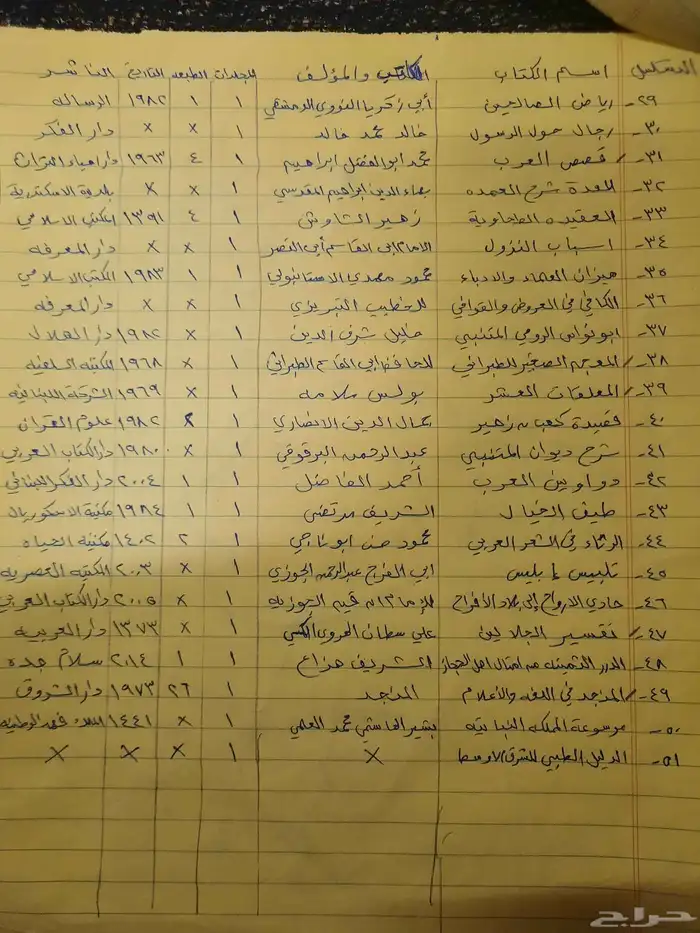 المسلسل اسم الكتاب الكاتب والمؤلف المجلدات الطبعه التاريخ الناشر
٢٩- رياض الصالحين أبي زكريا النووي الدمشقي ١ ١ ١٩٨٢ الرساله
٣٠- رجال حول الرسول خالد محمد خالد ١ x x دار الفكر
٣١- قصص العرب محمد ابو الفضل ابراهيم ١ ٤ ١٩٦٣ دار احياء التراث
٣٢- العدة شرح العمده بهاء الدين ابراهيم المقدسي ١ x x بلدية الاسكندرية
٣٣- العقيده الطحاوية زهير الشاوش ١ ٤ ١٣٩١ المكتب الاسلامي
٣٤- اسباب النزول الامام ابي القاسم أبي النصر ١ x x دار المعرفه
٣٥- ميزان العلماء والادباء محمود مهدي الاستانبولي ١ ١ ١٩٨٣ المكتب الاسلامي
٣٦- الكافي في العروض والقوافي للخطيب التبريزي ١ x x دار المعرفه
٣٧- ابو نواس الرومي المتنبي خليل شرف الدين ١ x ١٩٨٢ دار الهلال
٣٨- المعجم الصغير للطبراني للحافظ ابي القاسم الطبراني ١ x ١٩٦٨ المكتبه السلفيه
٣٩- المعلقات العشر بولس سلامه ١ x ١٩٦٩ الشركة اللبنانيه
٤٠- قصيدة كعب بن زهير جمال الدين الانصاري ١ x ١٩٨٢ علوم القران
٤١- شرح ديوان المتنبي عبدالرحمن البرقوقي ١ x ١٩٨٠ دار الكتاب العربي
٤٢- دواوين العرب أحمد الفاضل ١ ١ ٢٠٠٤ دار الفكر اللبناني
٤٣- طيف الخيال الشريف مرتضى ١ ١ ١٩٨٤ مكتبة الاسكوريال
٤٤- الرثاء في الشعر العربي محمود حسن ابو ناجي ١ ٢ ١٤٠٢ مكتبه الحياه
٤٥- تلبيس ابليس ابي الفرج عبدالرحمن الجوزي ١ x ٢٠٠٣ المكتبه العصريه
٤٦- حادي الارواح إلى بلاد الأفراح للإمام ابن قيم الجوزيه ١ x ٢٠٠٥ دار الكتاب العربي
٤٧- تفسير الجلالين علي سطان الهروي المكي ١ x ١٣٧٣ دار العربيه
٤٨- الدرر الثمينه من امثال اهل الحجاز الشريف هزاع ١ ١ ٢٠١٤ سلام جده
٤٩- المنجد في اللغه والأعلام المنجد ١ ٢٦ ١٩٧٣ دار الشروق
٥٠- موسوعة المملكه النباتيه بشير الهاشمي محمد العلمي ١ x ١٤٤١ الملك فهد الوطنيه
٥١- الدليل الطبي للشرق الاوسط x ١ x x x
حراج